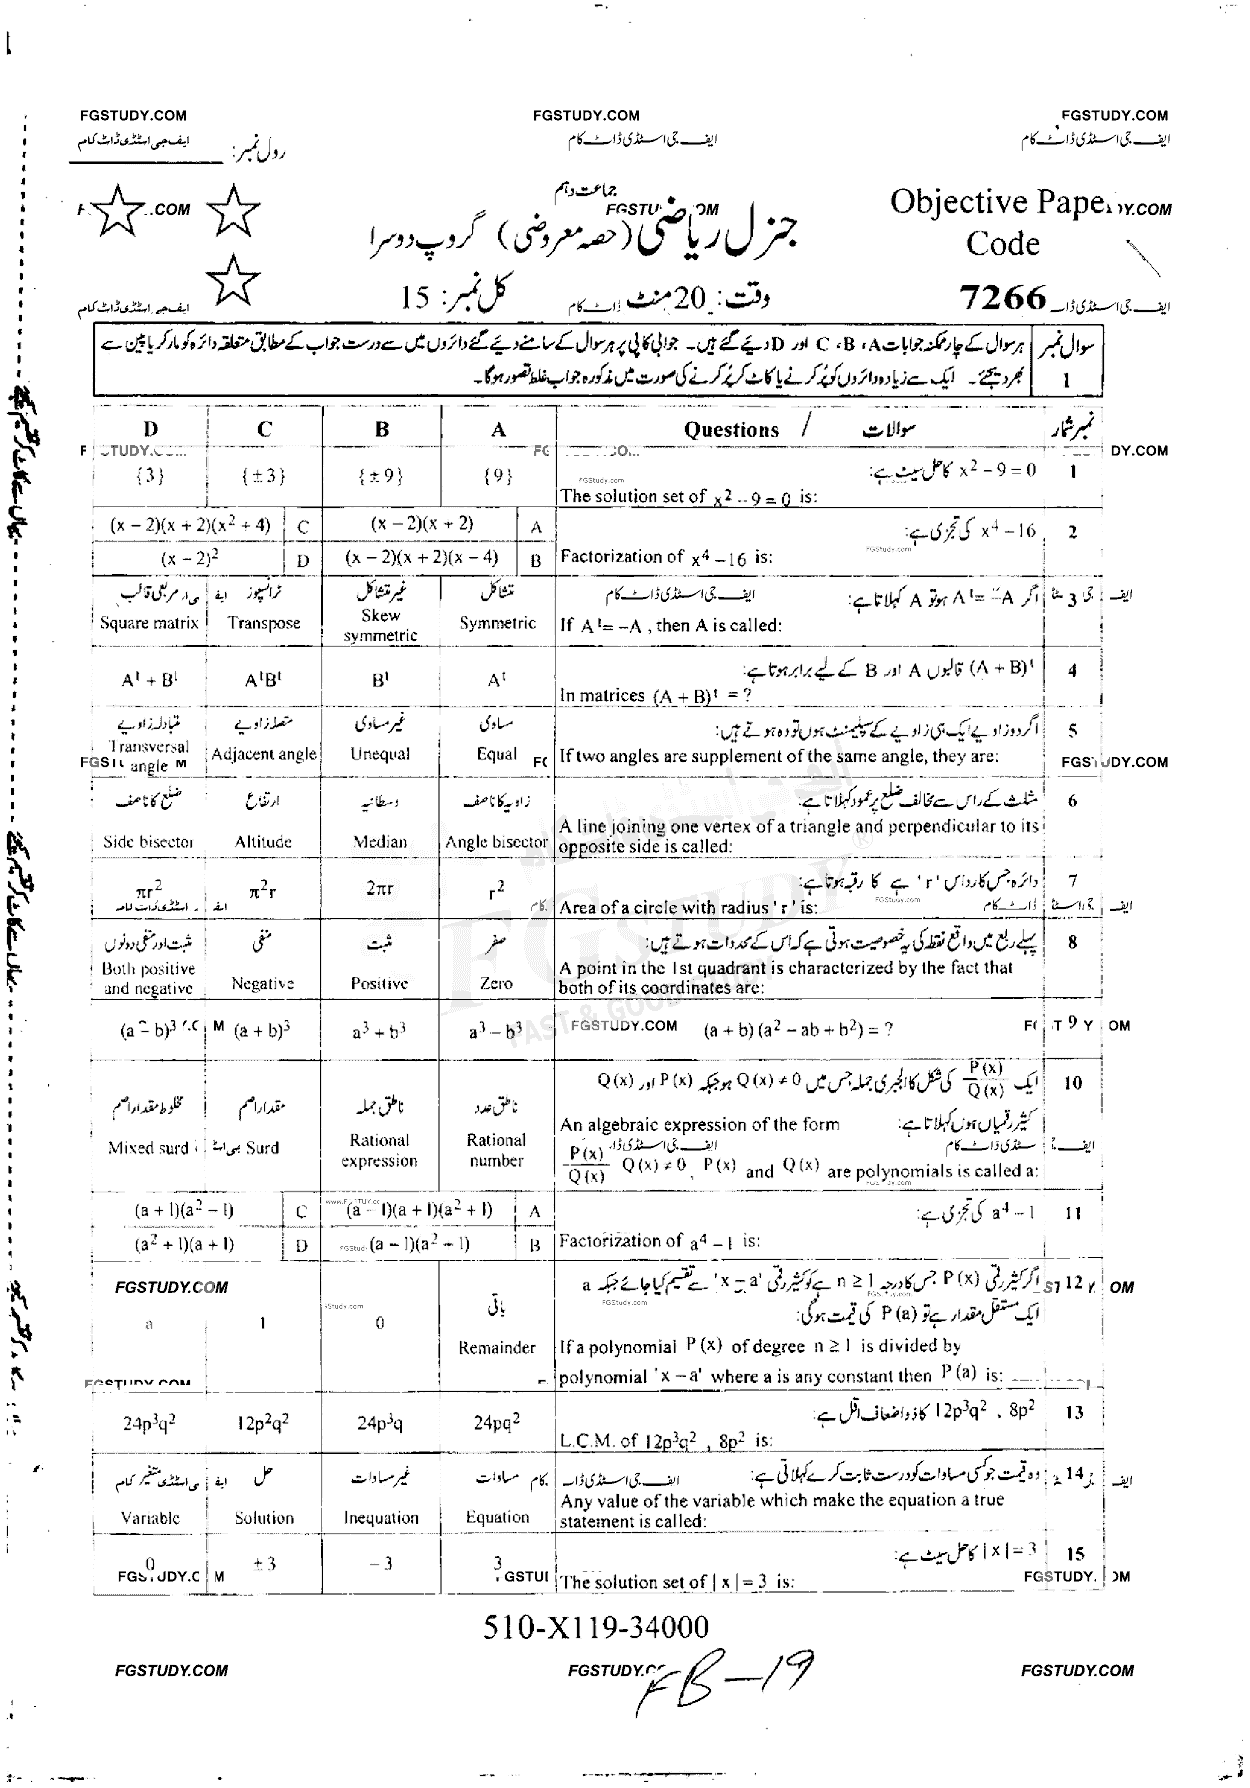 FGSTUDY.COM FGSTUDY.COM FGSTUDY.COM
ایف جی اسٹڈی ڈاٹ کام ایف جی اسٹڈی ڈاٹ کام ایف جی اسٹڈی ڈاٹ کام
رول نمبر:
جماعت دہم
Objective Paper
جنرل ریاضی (حصہ معروضی) گروپ دوسرا
Code
وقت: 20 منٹ کل نمبر: 15
7266
سوال نمبر 1 ہر سوال کے چار ممکنہ جوابات A، B، C اور D دیے گئے ہیں۔ جوابی کاپی پر ہر سوال کے سامنے دیے گئے دائروں میں سے درست جواب کے مطابق متعلقہ دائرہ کو مارکر یا پین سے
بھر دیجئے۔ ایک سے زیادہ دائروں کو پُر کرنے یا کاٹ کر پُر کرنے کی صورت میں مذکورہ جواب غلط تصور ہوگا۔
D C B A Questions / سوالات نمبر شمار
1 x² − 9 = 0 کا حل سیٹ ہے:
The solution set of x² − 9 = 0 is:
{3} {±3} {±9} {9}
2 x⁴ − 16 کی تجزی ہے:
Factorization of x⁴ − 16 is:
(x − 2)(x + 2)(x² + 4) C (x − 2)(x + 2) A
(x − 2)² D (x − 2)(x + 2)(x − 4) B
3 اگر Aᵗ = −A ہو تو A کہلاتا ہے:
If Aᵗ = −A , then A is called:
مربعی قالب ٹرانسپوز غیر متشاکل متشاکل
Square matrix Transpose Skew symmetric Symmetric
4 (A + B)ᵗ قالبوں A اور B کے لیے برابر ہوتا ہے:
In matrices (A + B)ᵗ = ?
Aᵗ + Bᵗ AᵗBᵗ Bᵗ Aᵗ
5 اگر دو زاویے ایک ہی زاویے کے سپلیمنٹ ہوں تو وہ ہوتے ہیں:
If two angles are supplement of the same angle, they are:
متبادلہ زاویے متصلہ زاویے غیر مساوی مساوی
Transversal angle Adjacent angle Unequal Equal
6 مثلث کے راس سے مخالف ضلع پر عمود کہلاتا ہے:
A line joining one vertex of a triangle and perpendicular to its
opposite side is called:
ضلع کا ناصف ارتفاع وسطانیہ زاویہ کا ناصف
Side bisector Altitude Median Angle bisector
7 دائرہ جس کا رداس 'r' ہے کا رقبہ ہوتا ہے:
Area of a circle with radius 'r' is:
πr² π²r 2πr r²
8 پہلے ربع میں واقع نقطہ کی یہ خصوصیت ہوتی ہے کہ اس کے محددات ہوتے ہیں:
A point in the 1st quadrant is characterized by the fact that
both of its coordinates are:
مثبت اور منفی دونوں منفی مثبت صفر
Both positive and negative Negative Positive Zero
9 (a + b)(a² − ab + b²) = ?
(a − b)³ (a + b)³ a³ + b³ a³ − b³
10 ایک P(x)/Q(x) کی شکل کا الجبری جملہ جس میں Q(x) ≠ 0 ہو جبکہ P(x) اور Q(x)
کثیر رقمیاں ہوں کہلاتا ہے:
An algebraic expression of the form
P(x)/Q(x) Q(x) ≠ 0, P(x) and Q(x) are polynomials is called a:
مخلوط مقدار اصم مقدار اصم ناطق جملہ ناطق عدد
Mixed surd Surd Rational expression Rational number
11 a⁴ − 1 کی تجزی ہے:
Factorization of a⁴ − 1 is:
(a + 1)(a² − 1) C (a − 1)(a + 1)(a² + 1) A
(a² + 1)(a + 1) D (a − 1)(a² − 1) B
12 اگر کثیر رقمی P(x) جس کا درجہ n ≥ 1 ہے کو کثیر رقمی 'x − a' سے تقسیم کیا جائے جبکہ a
ایک مستقل مقدار ہے تو P(a) کی قیمت ہوگی:
If a polynomial P(x) of degree n ≥ 1 is divided by
polynomial 'x − a' where a is any constant then P(a) is:
باقی
a 1 0 Remainder
13 12p³q² , 8p² کا ذواضعاف اقل ہے:
L.C.M. of 12p³q² , 8p² is:
24p³q² 12p²q² 24p³q 24pq²
14 وہ قیمت جو کسی مساوات کو درست ثابت کرے کہلاتی ہے:
Any value of the variable which make the equation a true
statement is called:
متغیر حل غیر مساوات مساوات
Variable Solution Inequation Equation
15 |x| = 3 کا حل سیٹ ہے:
The solution set of |x| = 3 is:
0 ±3 −3 3
510-X119-34000
FGSTUDY.COM FGSTUDY.CO FGSTUDY.COM
FB-19